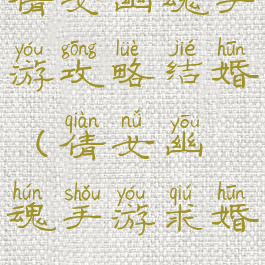 倩女幽魂手
yóu gōng lüè jié hūn
游攻略结婚
qiàn nǚ yōu
(倩女幽
hún shǒu yóu qiú hūn
魂手游求婚